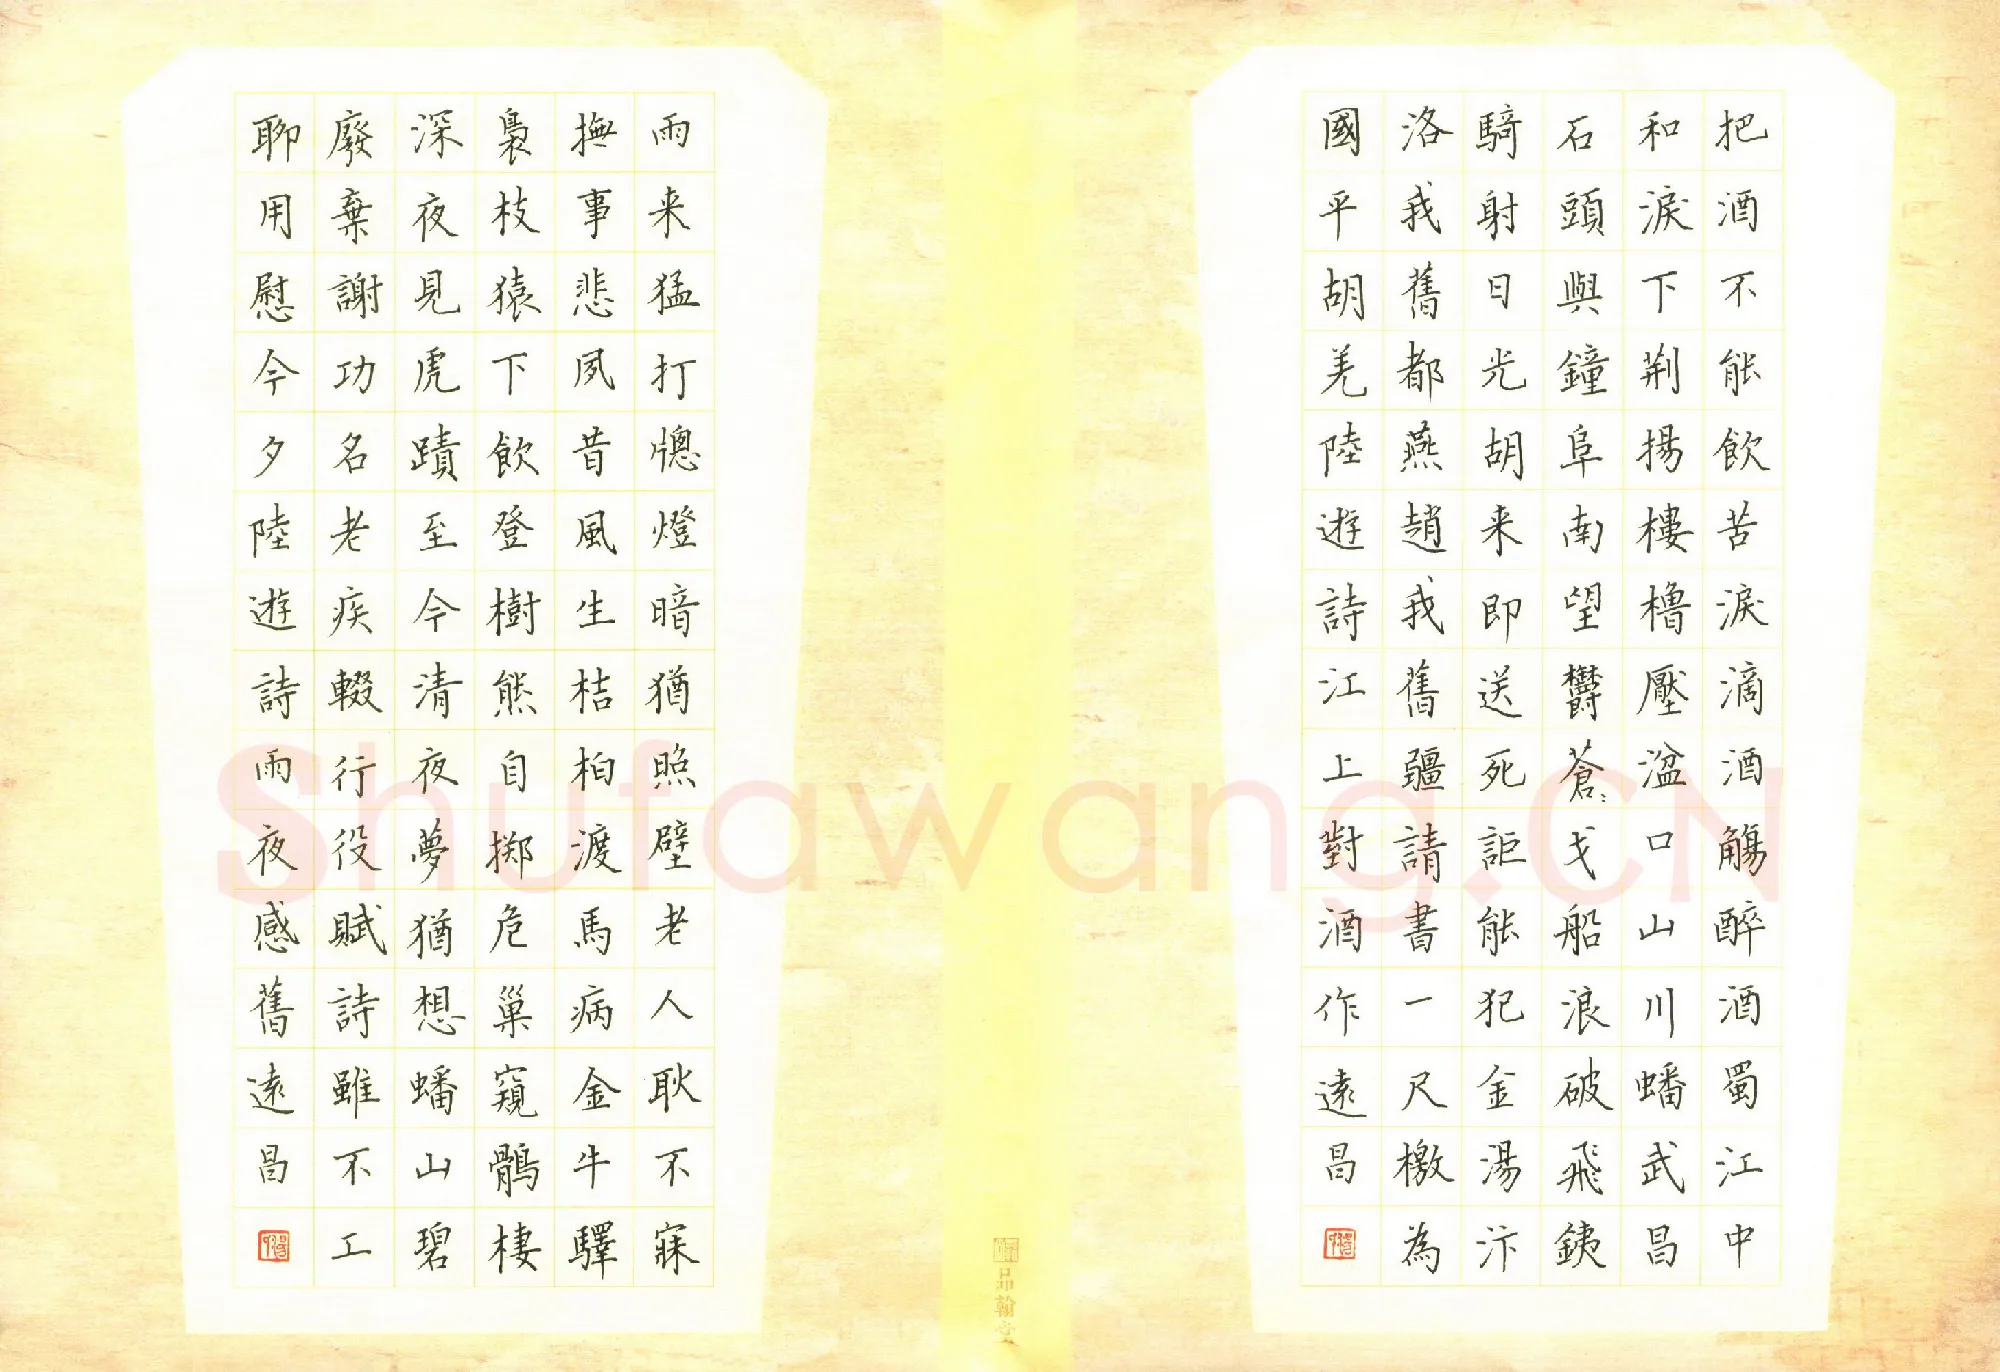 把酒不能飲苦淚滴酒觴醉酒蜀江中
和淚下荆揚樓櫓壓湓口山川蟠武昌
石頭與鐘阜南望欝蒼〻戈船浪破飛銕
騎射日光胡来即送死詎能犯金湯汴
洛我舊都燕趙我舊疆請書一尺檄為
國平胡羌陸遊詩江上對酒作遠昌
雨来猛打牕燈暗猶照壁老人耿不寐
撫事悲夙昔風生桔柏渡馬病金牛驛
裊枝猿下飲登樹熊自掷危巢窺鶻棲
深夜見虎蹟至今清夜夢猶想蟠山碧
廢棄謝功名老疾輟行役賦詩雖不工
聊用慰今夕陸遊詩雨夜感舊遠昌
Shufawang.CN